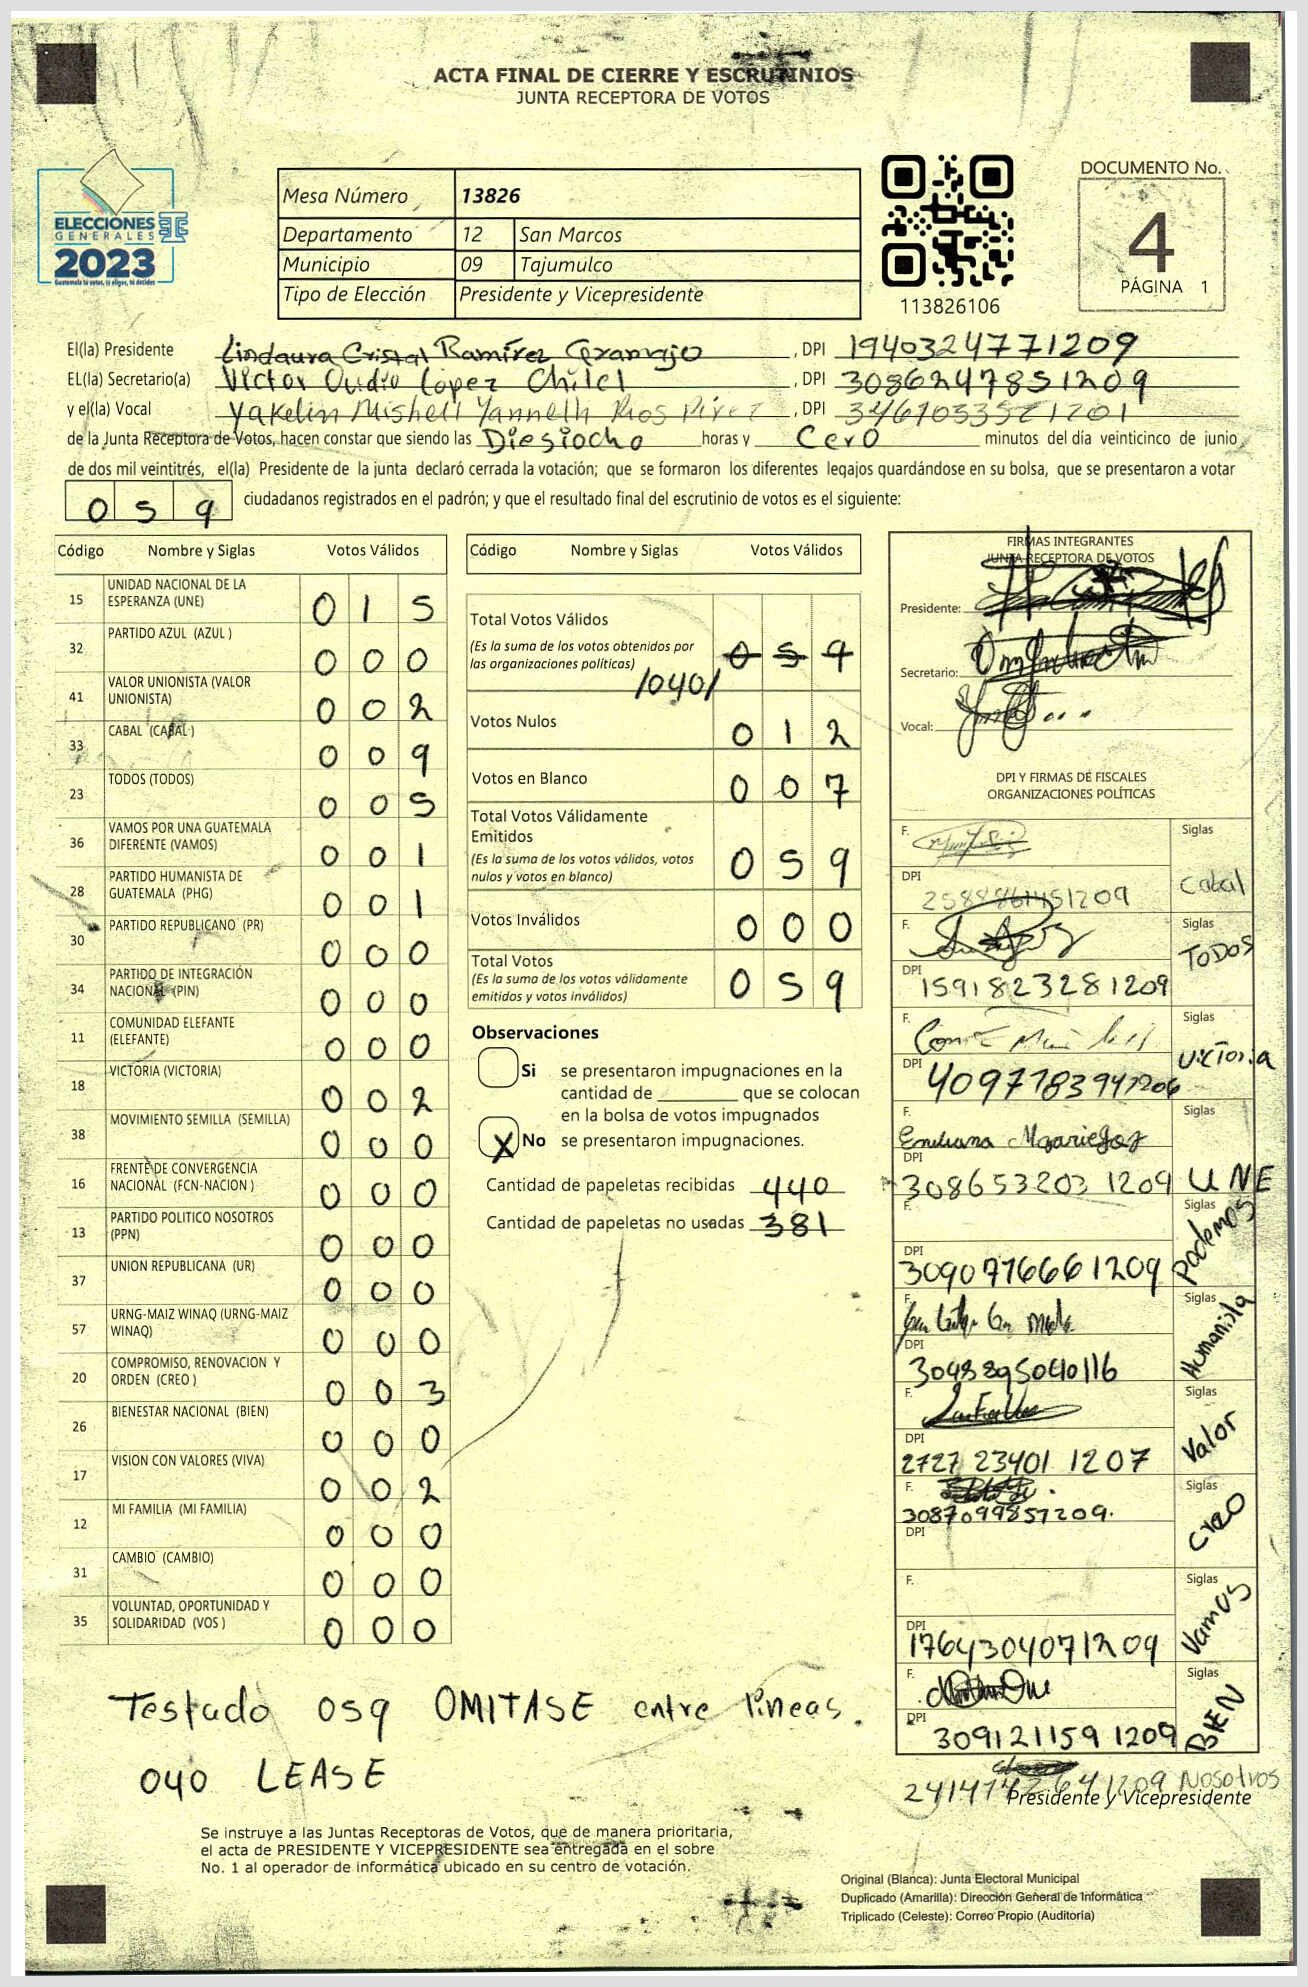 ACTA FINAL DE CIERRE Y ESCRUTINIOS
JUNTA RECEPTORA DE VOTOS
ELECCIONES
GENERALES
2023
Guatemala tú votas, tú eliges, tú decides
Mesa Número 13826
Departamento 12 San Marcos
Municipio 09 Tajumulco
Tipo de Elección Presidente y Vicepresidente
113826106
DOCUMENTO No.
4
PÁGINA 1
El(la) Presidente Lindaura Cristal Ramírez Gramajo, DPI 1940324771209
EL(la) Secretario(a) Victor Ovidio López Chilel, DPI 3086247851209
y el(la) Vocal Yakelin Mishell Yanneth Rios Pérez, DPI
de la Junta Receptora de Votos, hacen constar que siendo las Diesiocho horas y Cero minutos del día veinticinco de junio
de dos mil veintitrés, el(la) Presidente de la junta declaró cerrada la votación; que se formaron los diferentes legajos quardándose en su bolsa, que se presentaron a votar
059 ciudadanos registrados en el padrón; y que el resultado final del escrutinio de votos es el siguiente:
Código Nombre y Siglas Votos Válidos
15 UNIDAD NACIONAL DE LA ESPERANZA (UNE) 015
32 PARTIDO AZUL (AZUL ) 000
41 VALOR UNIONISTA (VALOR UNIONISTA) 002
33 CABAL (CABAL ) 009
23 TODOS (TODOS) 005
36 VAMOS POR UNA GUATEMALA DIFERENTE (VAMOS) 001
28 PARTIDO HUMANISTA DE GUATEMALA (PHG) 001
30 PARTIDO REPUBLICANO (PR) 000
34 PARTIDO DE INTEGRACIÓN NACIONAL (PIN) 000
11 COMUNIDAD ELEFANTE (ELEFANTE) 000
18 VICTORIA (VICTORIA) 002
38 MOVIMIENTO SEMILLA (SEMILLA) 000
16 FRENTE DE CONVERGENCIA NACIONAL (FCN-NACION ) 000
13 PARTIDO POLITICO NOSOTROS (PPN) 000
37 UNION REPUBLICANA (UR) 000
57 URNG-MAIZ WINAQ (URNG-MAIZ WINAQ) 000
20 COMPROMISO, RENOVACION Y ORDEN (CREO ) 003
26 BIENESTAR NACIONAL (BIEN) 000
17 VISION CON VALORES (VIVA) 002
12 MI FAMILIA (MI FAMILIA) 000
31 CAMBIO (CAMBIO) 000
35 VOLUNTAD, OPORTUNIDAD Y SOLIDARIDAD (VOS ) 000
Código Nombre y Siglas Votos Válidos
Total Votos Válidos 059
(Es la suma de los votos obtenidos por
las organizaciones políticas)
/040/
Votos Nulos 012
Votos en Blanco 007
Total Votos Válidamente
Emitidos 059
(Es la suma de los votos válidos, votos
nulos y votos en blanco)
Votos Inválidos 000
Total Votos 059
(Es la suma de los votos válidamente
emitidos y votos inválidos)
Observaciones
Si se presentaron impugnaciones en la
cantidad de ________ que se colocan
en la bolsa de votos impugnados
X No se presentaron impugnaciones.
Cantidad de papeletas recibidas 440
Cantidad de papeletas no usadas 381
FIRMAS INTEGRANTES
JUNTA RECEPTORA DE VOTOS
Presidente:
Secretario:
Vocal:
DPI Y FIRMAS DE FISCALES
ORGANIZACIONES POLÍTICAS
F. Siglas
DPI Cabal
F. Siglas
DPI 1591823281209 TODOS
F. Siglas
DPI Victoria
F. Emiliana Siglas
DPI 3086532031209 UNE
F. Siglas
DPI 3090776661209 Podemos
F. Siglas
DPI Humanista
F. Siglas
DPI 2727234011207 Valor
F. Siglas
3087099851209.
DPI Creo
F. Siglas
DPI 1764304071209 Vamos
F. Siglas
DPI 3091211591209 BIEN
Nosotros
Presidente y Vicepresidente
Testado 059 OMITASE entre líneas.
040 LEASE
Se instruye a las Juntas Receptoras de Votos, que de manera prioritaria,
el acta de PRESIDENTE Y VICEPRESIDENTE sea entregada en el sobre
No. 1 al operador de informática ubicado en su centro de votación.
Original (Blanca): Junta Electoral Municipal
Duplicado (Amarilla): Dirección General de Informática
Triplicado (Celeste): Correo Propio (Auditoría)